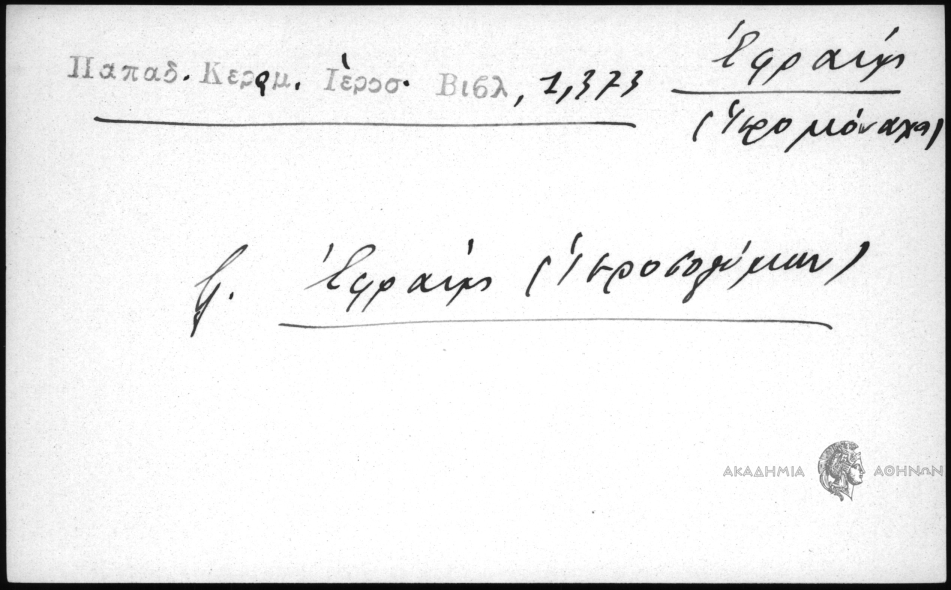 Παπαδ. Κεραμ. Ἱεροσ. Βιβλ, 1,373
Ἐφραίμ
(Ἱερομόναχος)
β. Ἐφραίμ (Ἱεροσολύμων)
ΑΚΑΔΗΜΙΑ ΑΘΗΝΩΝ